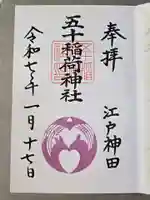 奉拝
江戸神田
五十稲荷神社
令和七年一月十七日